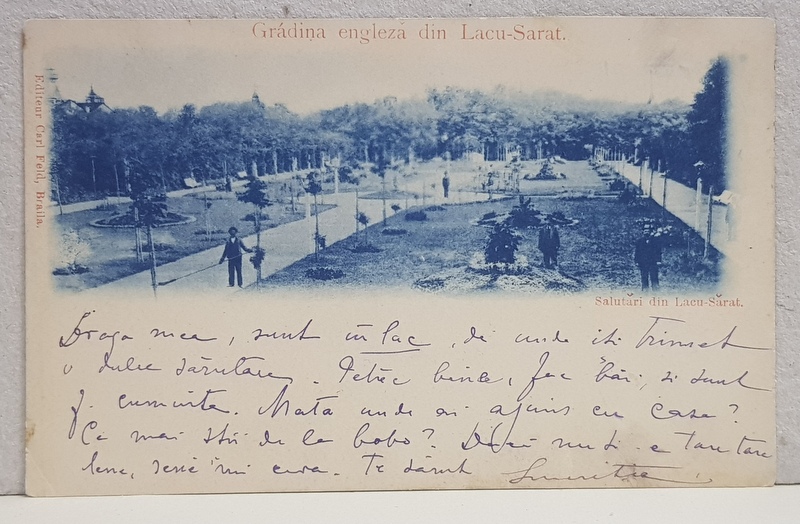 Grádiņa engleză din Lacu-Sarat.
Editeur Carl Feld, Braila.
Salutări din Lacu-Sărat.
Draga mea, sunt în lac, de unde iti trimet
o dulce sărutare. Petrec bine, fac băi, si sunt
f. cuminte. Mata unde ai ajuns cu casa?
Ce mai stii de la bobo? Dacă nu ti-e tare tare
lene, scrie'mi ceva. Te sărut